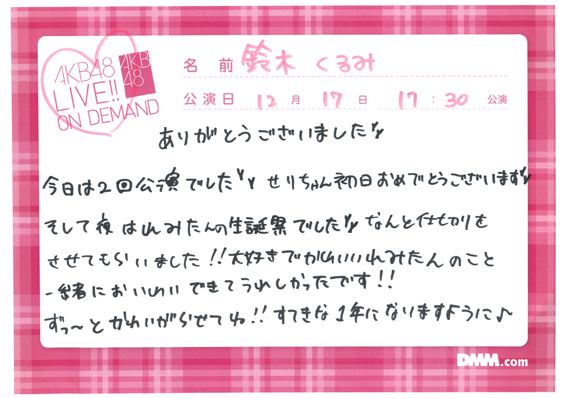 AKB48
LIVE!!
ON DEMAND
AKB
48
名前 鈴木くるみ
公演日 12月17日 17:30 公演
ありがとうございました
今日は2回公演でした せりちゃん初日おめでとうございます
そして夜はれみたんの生誕祭でした なんと仕切りを
させてもらいました!!大好きでかわいいれみたんのこと
一緒においわいできてうれしかったです!!
ずっ〜とかわいがらせてね!!すてきな1年になりますように♪
DMM.com